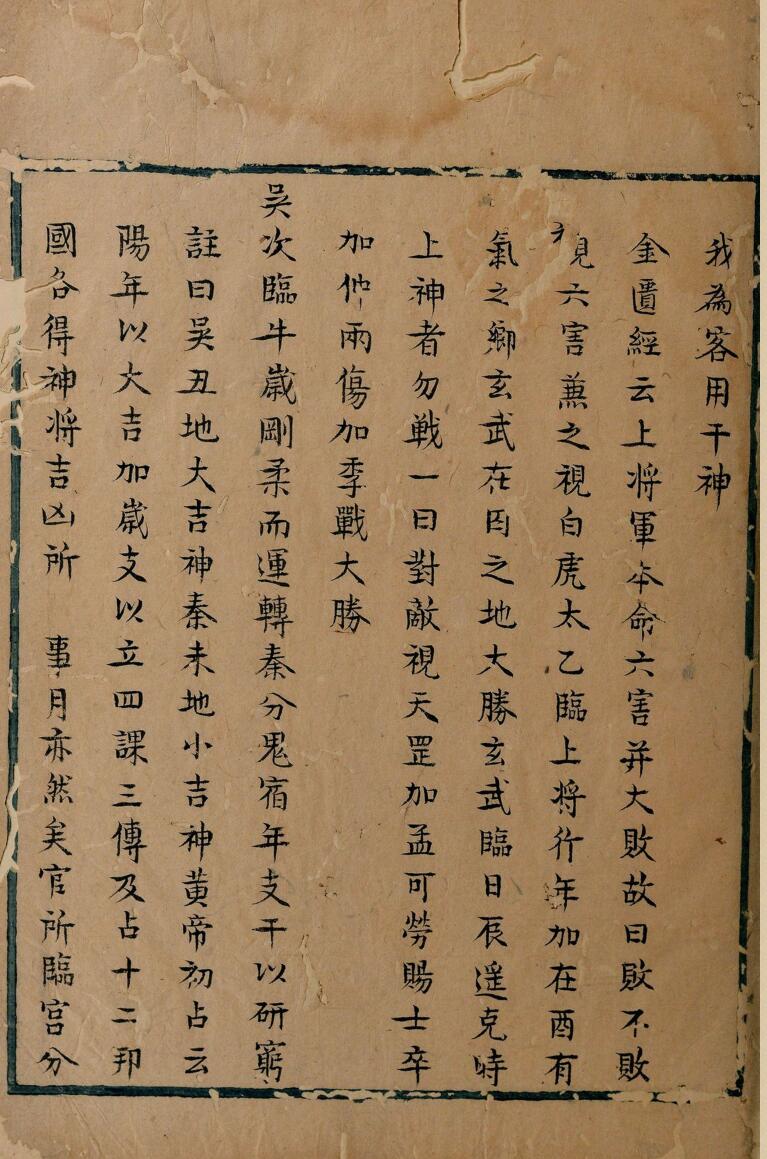 我為客用干神
金匱經云上将軍本命六害并大敗故曰敗不敗
視六害無之視白虎太乙臨上将行年加在酉有
氣之鄉玄武在囚之地大勝玄武臨日辰遥克時
上神者勿戰一曰對敵視天罡加孟可勞賜士卒
加仲兩傷加季戰大勝
吳次臨牛歲剛柔而運轉秦分鬼宿年支干以研窮
註曰吳丑地大吉神秦未地小吉神黄帝初占云
陽年以大吉加歲支以立四課三傳及占十二邦
國各得神将吉凶所 事月亦然矣官所臨宫分